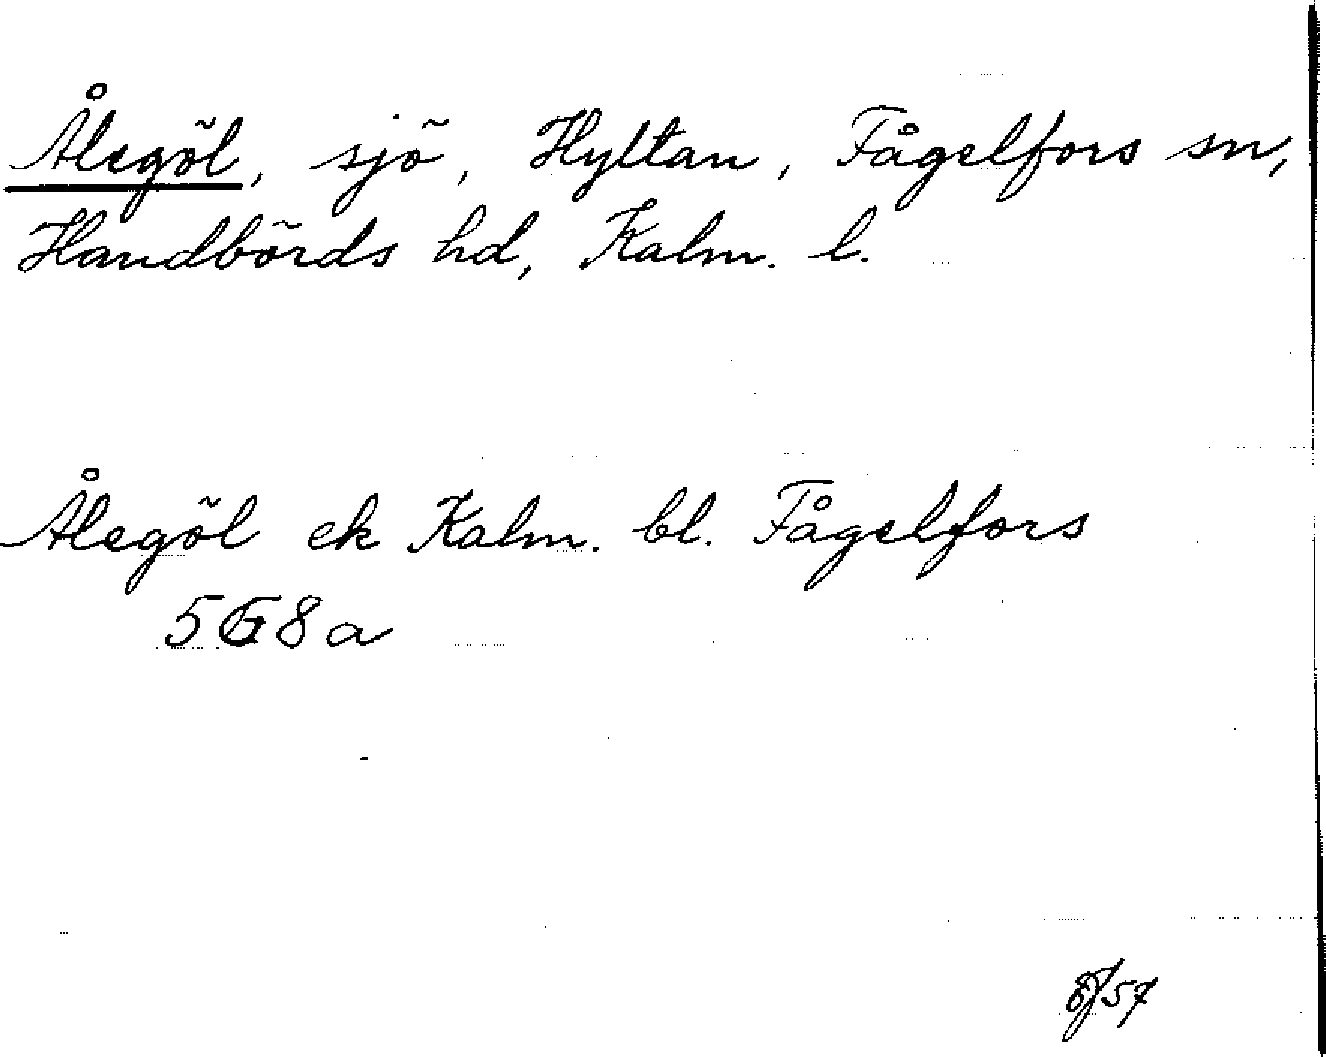 Ålegöl, sjö, Hyltan, Fågelfors sn,
Handbörds hd, Kalm. l.
Ålegöl ek Kalm. bl. Fågelfors
5G8a